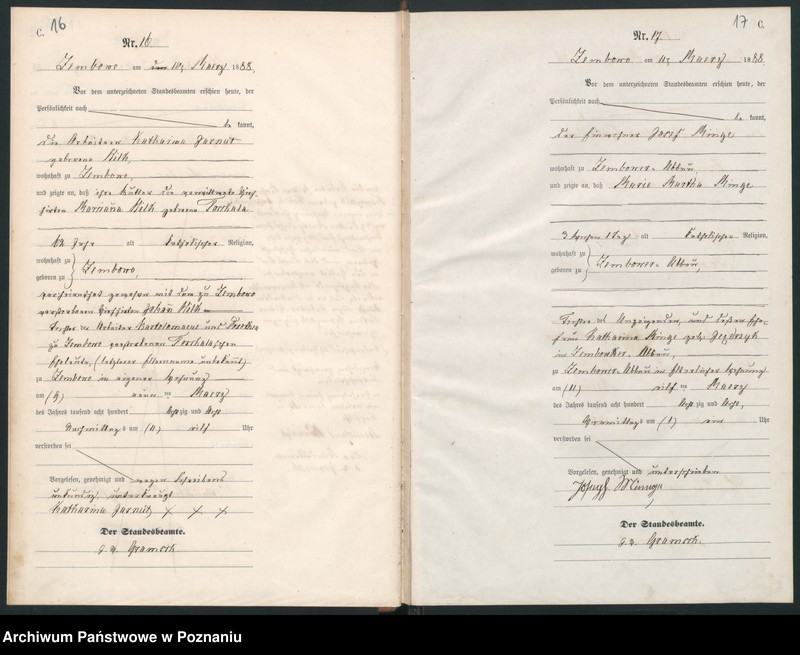 C.
16
Nr. 16
Zembowo am 10ten Maerz 1888,
Vor dem unterzeichneten Standesbeamten erschien heute, der
Persönlichkeit nach
be kannt,
die Arbeiterin Katharina
geborene
wohnhaft zu Zembowo,
und zeigte an, daß ihre Mutter die
Marianna geborene
Jahr alt katholischer Religion,
wohnhaft zu
geboren zu Zembowo,
verheirathet gewesen mit dem zu Zembowo
verstorbenen Johan
Tochter der Arbeiter Bartolomaeus und
zu Zembowo verstorbenen
Eheleute, (letzterer unbekant)
zu Zembowo in eigener Wohnung
am (9) neun ten Maerz
des Jahres tausend acht hundert acht zig und acht
Nachmittags um (11) elf Uhr
verstorben sei
Vorgelesen, genehmigt und wegen Schreibens
unkundig unterkreuzt
Katharina x x x
Der Standesbeamte.
17 C.
Nr. 17
Zembowo am 11ten Maerz 1888.
Vor dem unterzeichneten Standesbeamten erschien heute, der
Persönlichkeit nach
be kannt,
der Einwohner Josef
wohnhaft zu Zembower-Abbau,
und zeigte an, daß Marie Martha
3 Wochen 1 Tag alt katholischer Religion,
wohnhaft zu
geboren zu Zembower-Abbau,
Tochter des Anzeigenden, und dessen Ehe-
frau Katharina geb:
in Abbau,
zu Zembower-Abbau in elterlicher Wohnung
am (11) elf ten Maerz
des Jahres tausend acht hundert acht zig und acht,
Vormittags um (1) ein Uhr
verstorben sei
Vorgelesen, genehmigt und unterschrieben
Der Standesbeamte.
Archiwum Państwowe w Poznaniu